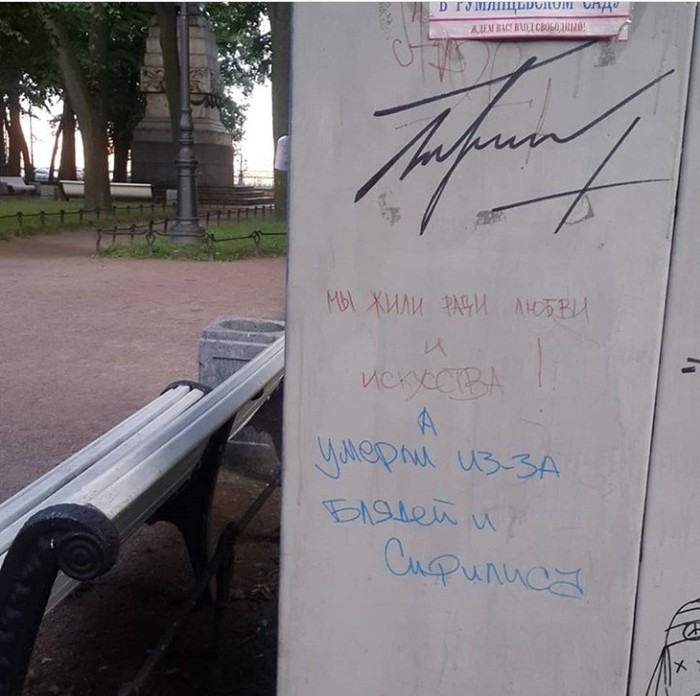 В РУМЯНЦЕВСКОМ САДУ
ЖДЕМ ВАС! ВХОД СВОБОДНЫЙ!
МЫ ЖИЛИ РАДИ ЛЮБВИ
И
ИСКУССТВА !
А
умерли ИЗ-ЗА
Блядей и
Сифилиса